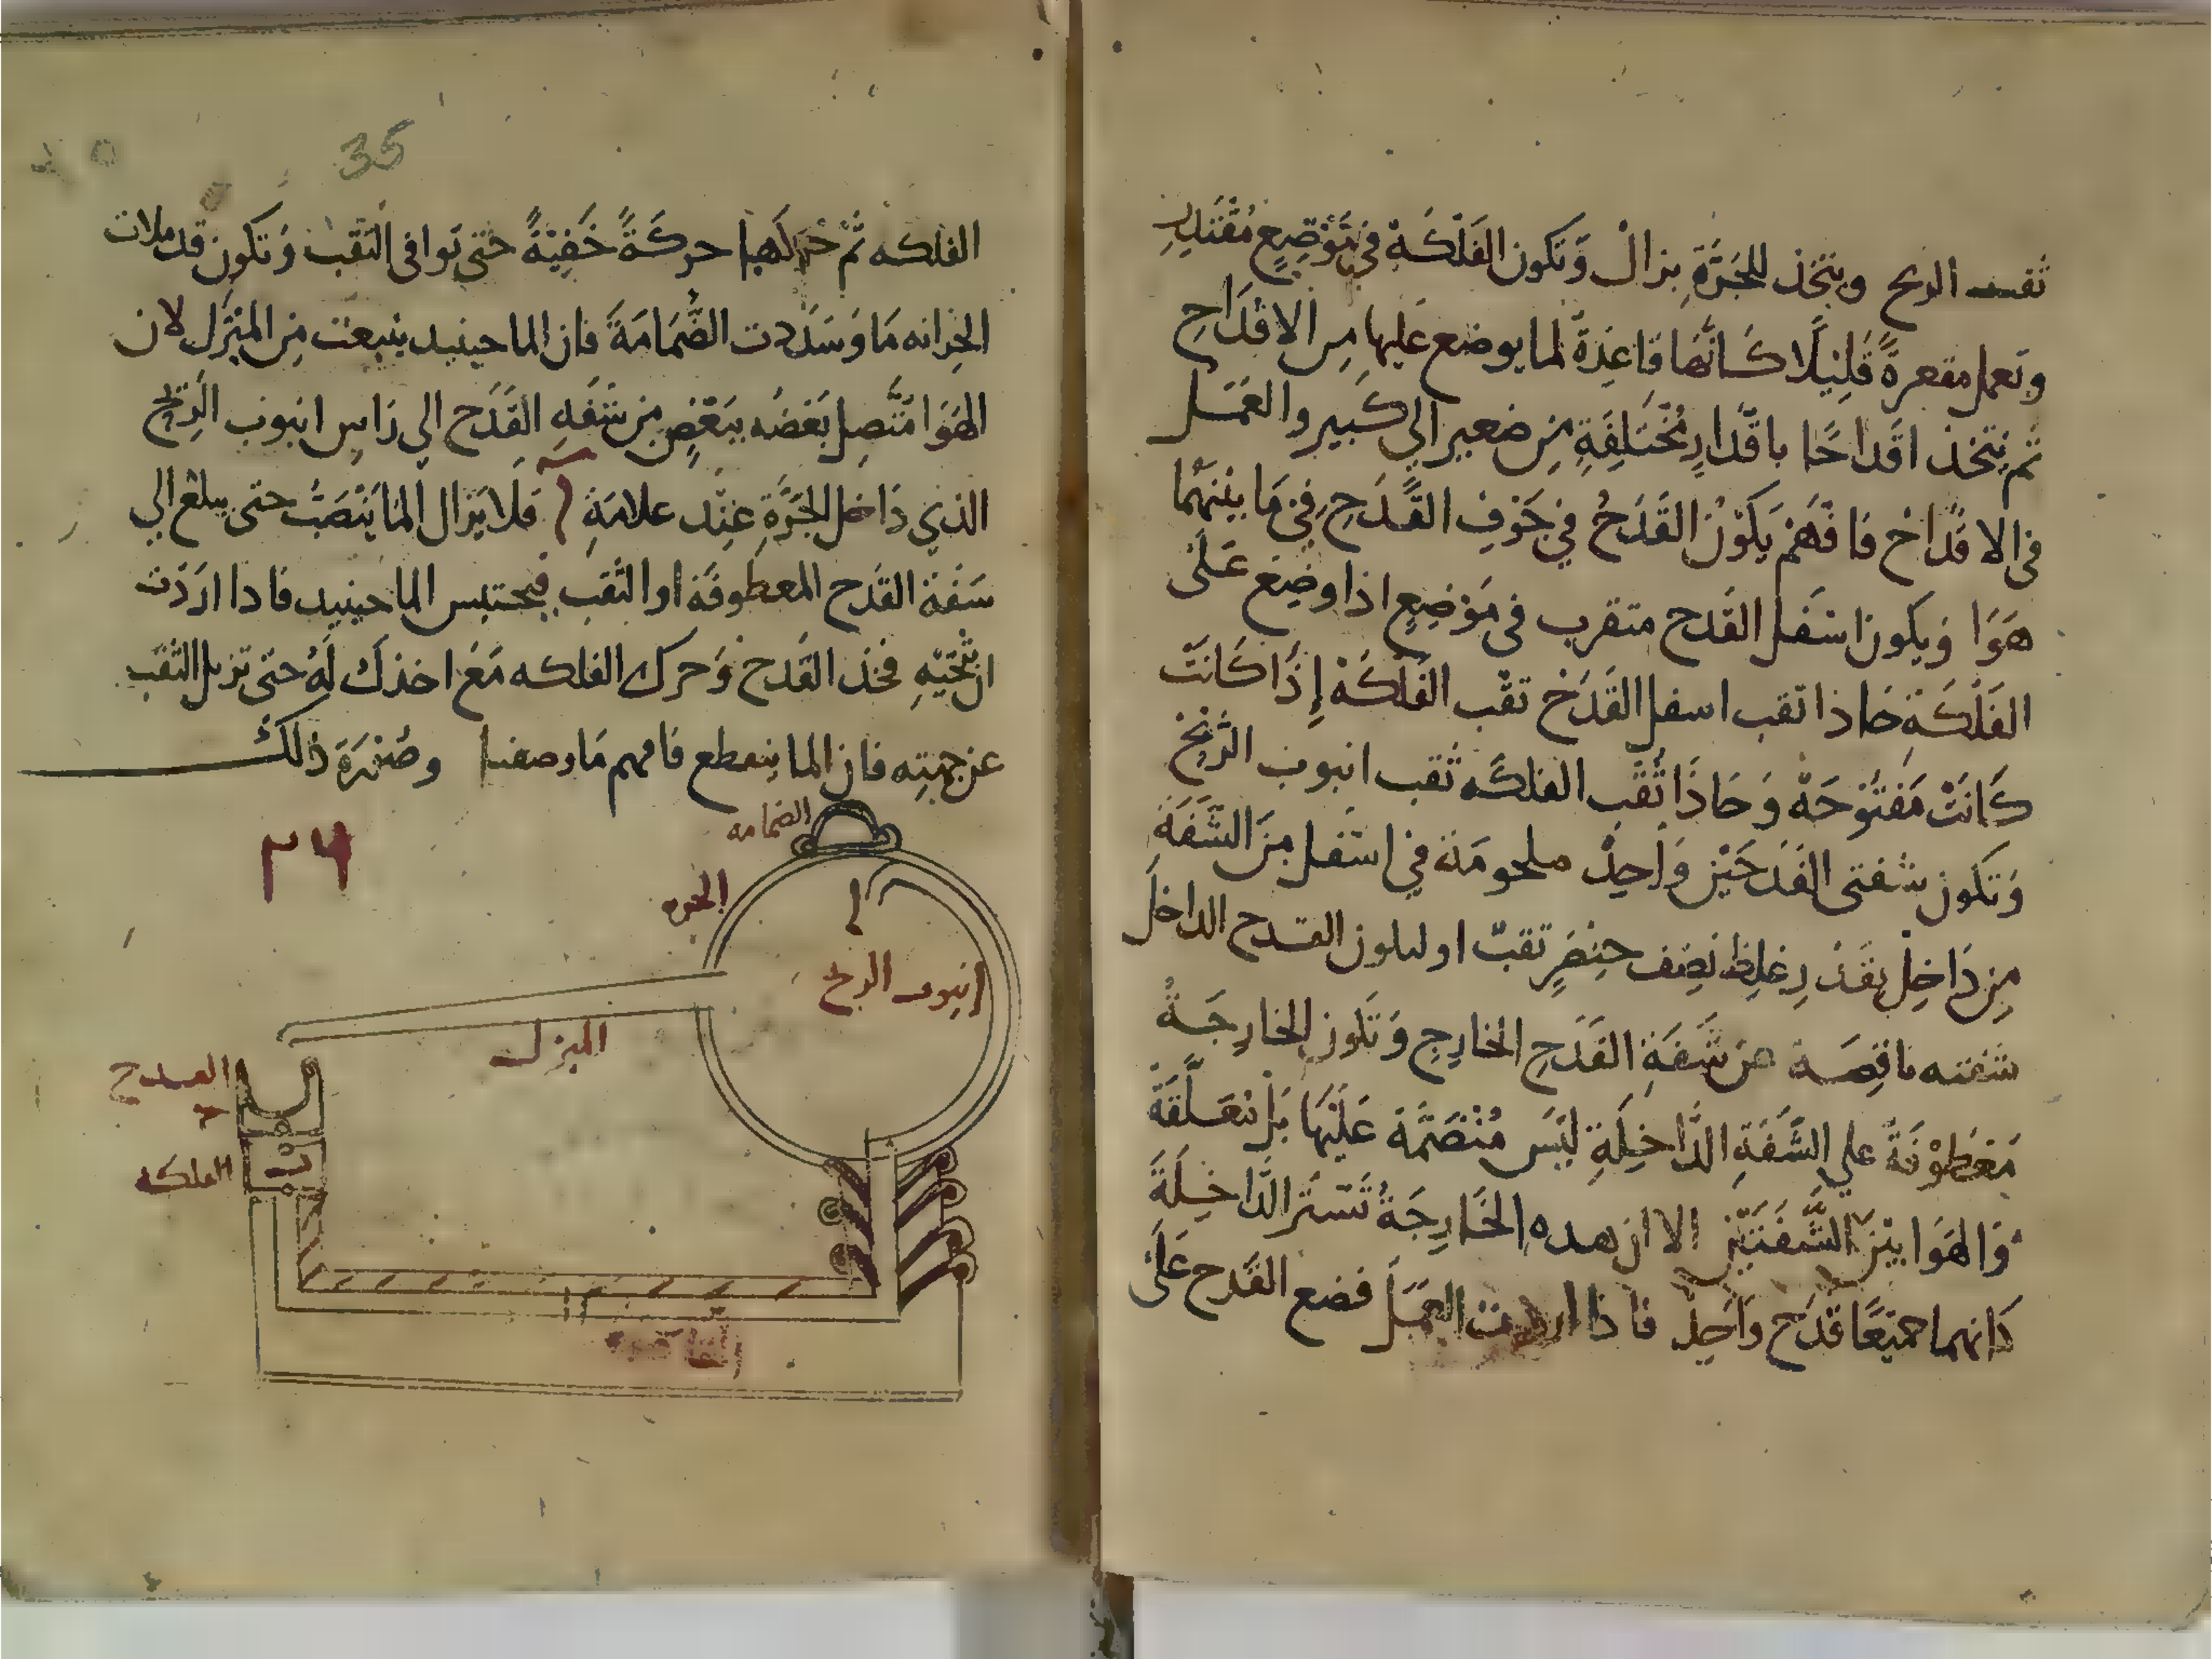 ثقب الريح ويتخذ للجَرَّةِ بزالْ وَتَكون الفَلْكَةْ في مَوْضِعٍ مُقْتَدِرٍ
وتعمل مقعرةً قَلِيْلًا كَأنَّها قَاعِدَةً لما يوضع عَليها مِن الاقْدَاحِ
ثم يتخذ اقداحًا باقْدارِ مُخْتَلِفَةٍ مِن صغير الي كَبير والعَمَل
فى الاقْدَاحْ فافْهَمْ يَكَوْنْ القَدَحُ في جَوْفِ القَدَحِ في مَا بينَهُما
هَوَا وَيكون اسْفل القَدح متقرب فى مَوْضِعٍ اذا وضِعَ عَلَى
الفَلْكَةِ حَاذا ثقب اسفل القَدَحْ ثقْب الفَلْكَهْ إِذَا كَانَتْ
كَانَتْ مَفْتُوْحَهْ وَحَاذَا ثُقْب الفلكَه ثقب انبوب الرِّيْحْ
وَتَكون شَفتى القَدَحَيْن وَاحِدْ ملحومَة في اسْفل مِنَ الشَّفَةِ
مِن دَاخِلْ بقَدْرِ غلِظ نصْف خنصَرٍ ثقبْ القدح الداخل
شفته ناقِصَة عن شَفَةِ القَدَحِ الخارجِ وَتَكون الخارِجَةْ
مَعْطوْفَةً علي الشَّفَةِ الدَّاخِلَةِ ليَس مُنْضَمَّة عَلَيْهَا بَل مُعَلَّقَةً
وَالهَوَا بيْنَ الشَّفَتَيْن الا ان هده الخَارِجَةْ تَسْتُرُ الدَّاخِلَةَ
كَانهما جميْعًا قدَح وَاحِدْ فاذا اردت العَمَل فضع القَدح عَلَى
35
الفلكه ثمْ حركها حركَةً خَفِيَّةً حتى توافى الثقب وَتَكون قد ملات
الخزانه مَا وَسَدَدت الضَّمَامَةَ فان الما حينيد ينبعث مِن المبزَل لان
الهَوَا مُتَّصِل بَعْضُه ببَعْضٍ مِن شَفَهِ القَدَح الي رَاسِ انبوب الرِّيْحْ
الذي دَاخل الجَرَّةِ عِنْد علامَةِ ا فلا يَزال الما يَنْصَبُّ حتى يبلغ الي
شَفة القَدح المعطوفَة او الثقب فيحتبس الما حينيد فادا اردَت
ان تنْحّيْهِ فخذ القَدح وَحرك الفلكه مَعَ اخذكَ لَهُ حتى تزيل الثقب
عن جهته فان الما ينقطع فافهم مَا وصفنا وصُوْرَة ذلكَ
٢٦
الضمامه
الجره
ا
انبوب الريح
المبزل
القدح
ح
الفلكه
ب